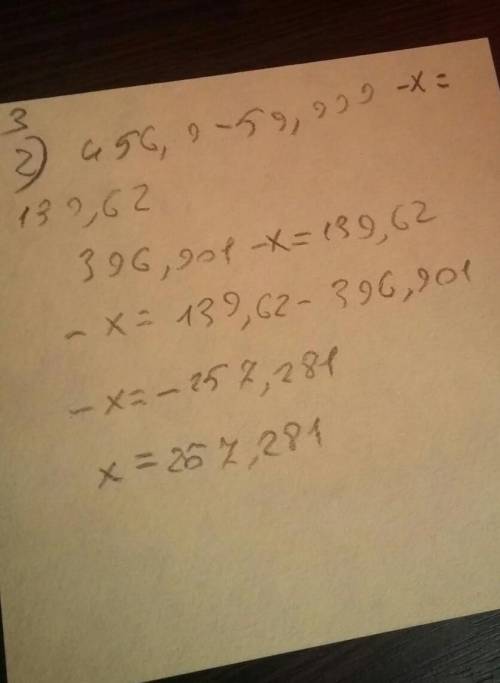 3
2) 456,9-59,999-x=
139,62
396,901-x=139,62
-x=139,62-396,901
-x=-257,281
x=257,281